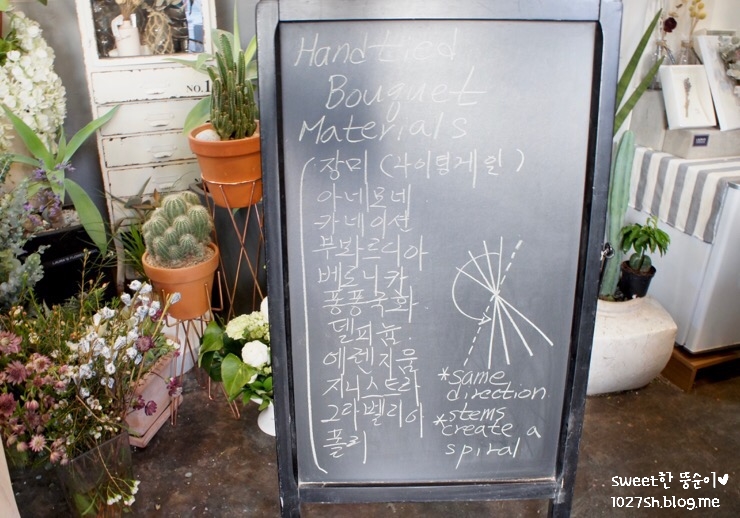 NO.1
Handtied
Bouquet
Materials
장미 (나이팅게일)
아네모네
카네이션
부바르디아
베로니카
퐁퐁국화
델피늄.
에렌지움
지니스타
그라벨리아
폴리
*same
direction
*stems
create a
spiral
sweet한 뚱순이♥
1027sh.blog.me